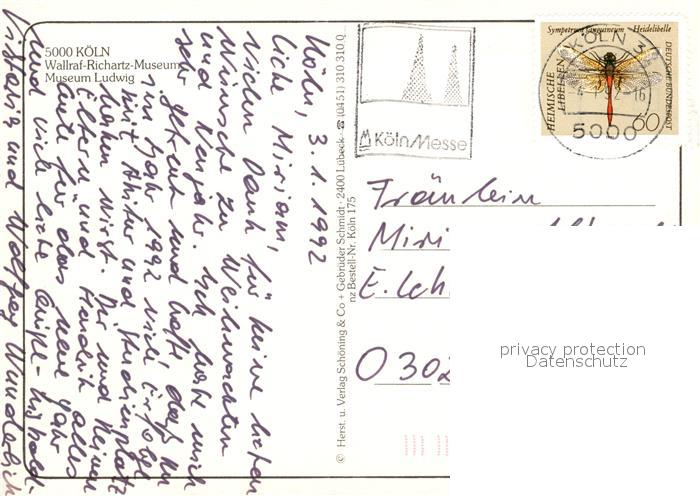 5000 KÖLN
Wallraf-Richartz-Museum
Museum Ludwig
Köln, 3. 1. 1992
Liebe Miriam,
vielen Dank für Deine lieben
Wünsche zu Weihnachten
und Neujahr. Ich habe mich
sehr gefreut und hoffe, daß Du
im Jahr 1992 viel Erfolg
mit Abitur und Studienplatz
haben wirst. Dir und Deinen
Eltern und Hendrik alles
Gute für das neue Jahr
und viele liebe Grüße
und Wolfgang Wunderlich
© Herst. u. Verlag Schöning & Co + Gebrüder Schmidt · 2400 Lübeck · ☎ (0451) 310 310.0
nz Bestell-Nr. Köln 175
KölnMesse
Sympetrum sanguineum – Heidelibelle
HEIMISCHE
LIBELLEN
DEUTSCHE BUNDESPOST
60
KÖLN 3
5000
Fräulein
Miri
E.
O 302
privacy protection
Datenschutz